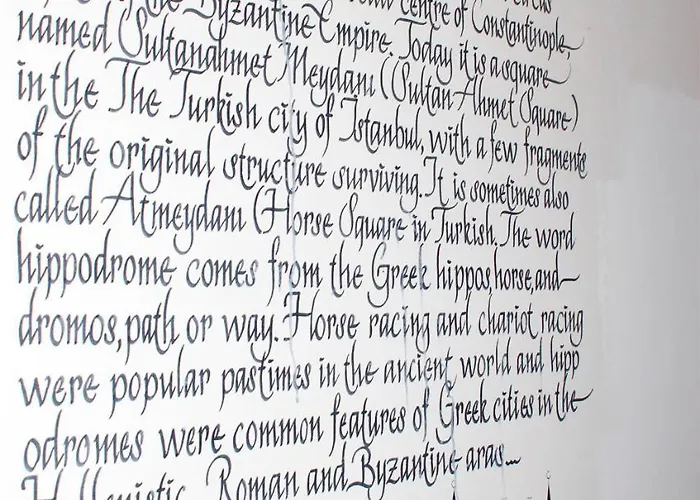 the Byzantine Empire. Today it is a square
centre of Constantinople,
named Sultanahmet Meydanı (Sultan Ahmet Square)
in the The Turkish city of Istanbul, with a few fragments
of the original structure surviving. It is sometimes also
called Atmeydanı (Horse Square in Turkish. The word
hippodrome comes from the Greek hippos, horse, and
dromos, path or way. Horse racing and chariot racing
were popular pastimes in the ancient world and hipp
odromes were common features of Greek cities in the
Hellenistic, Roman and Byzantine aras...